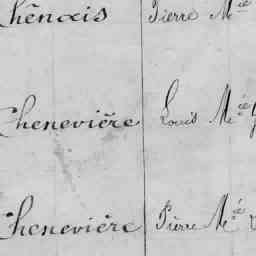 Chênais Pierre M.ie
Chenevière Louis M.ie
Chenevière Pierre M.ie